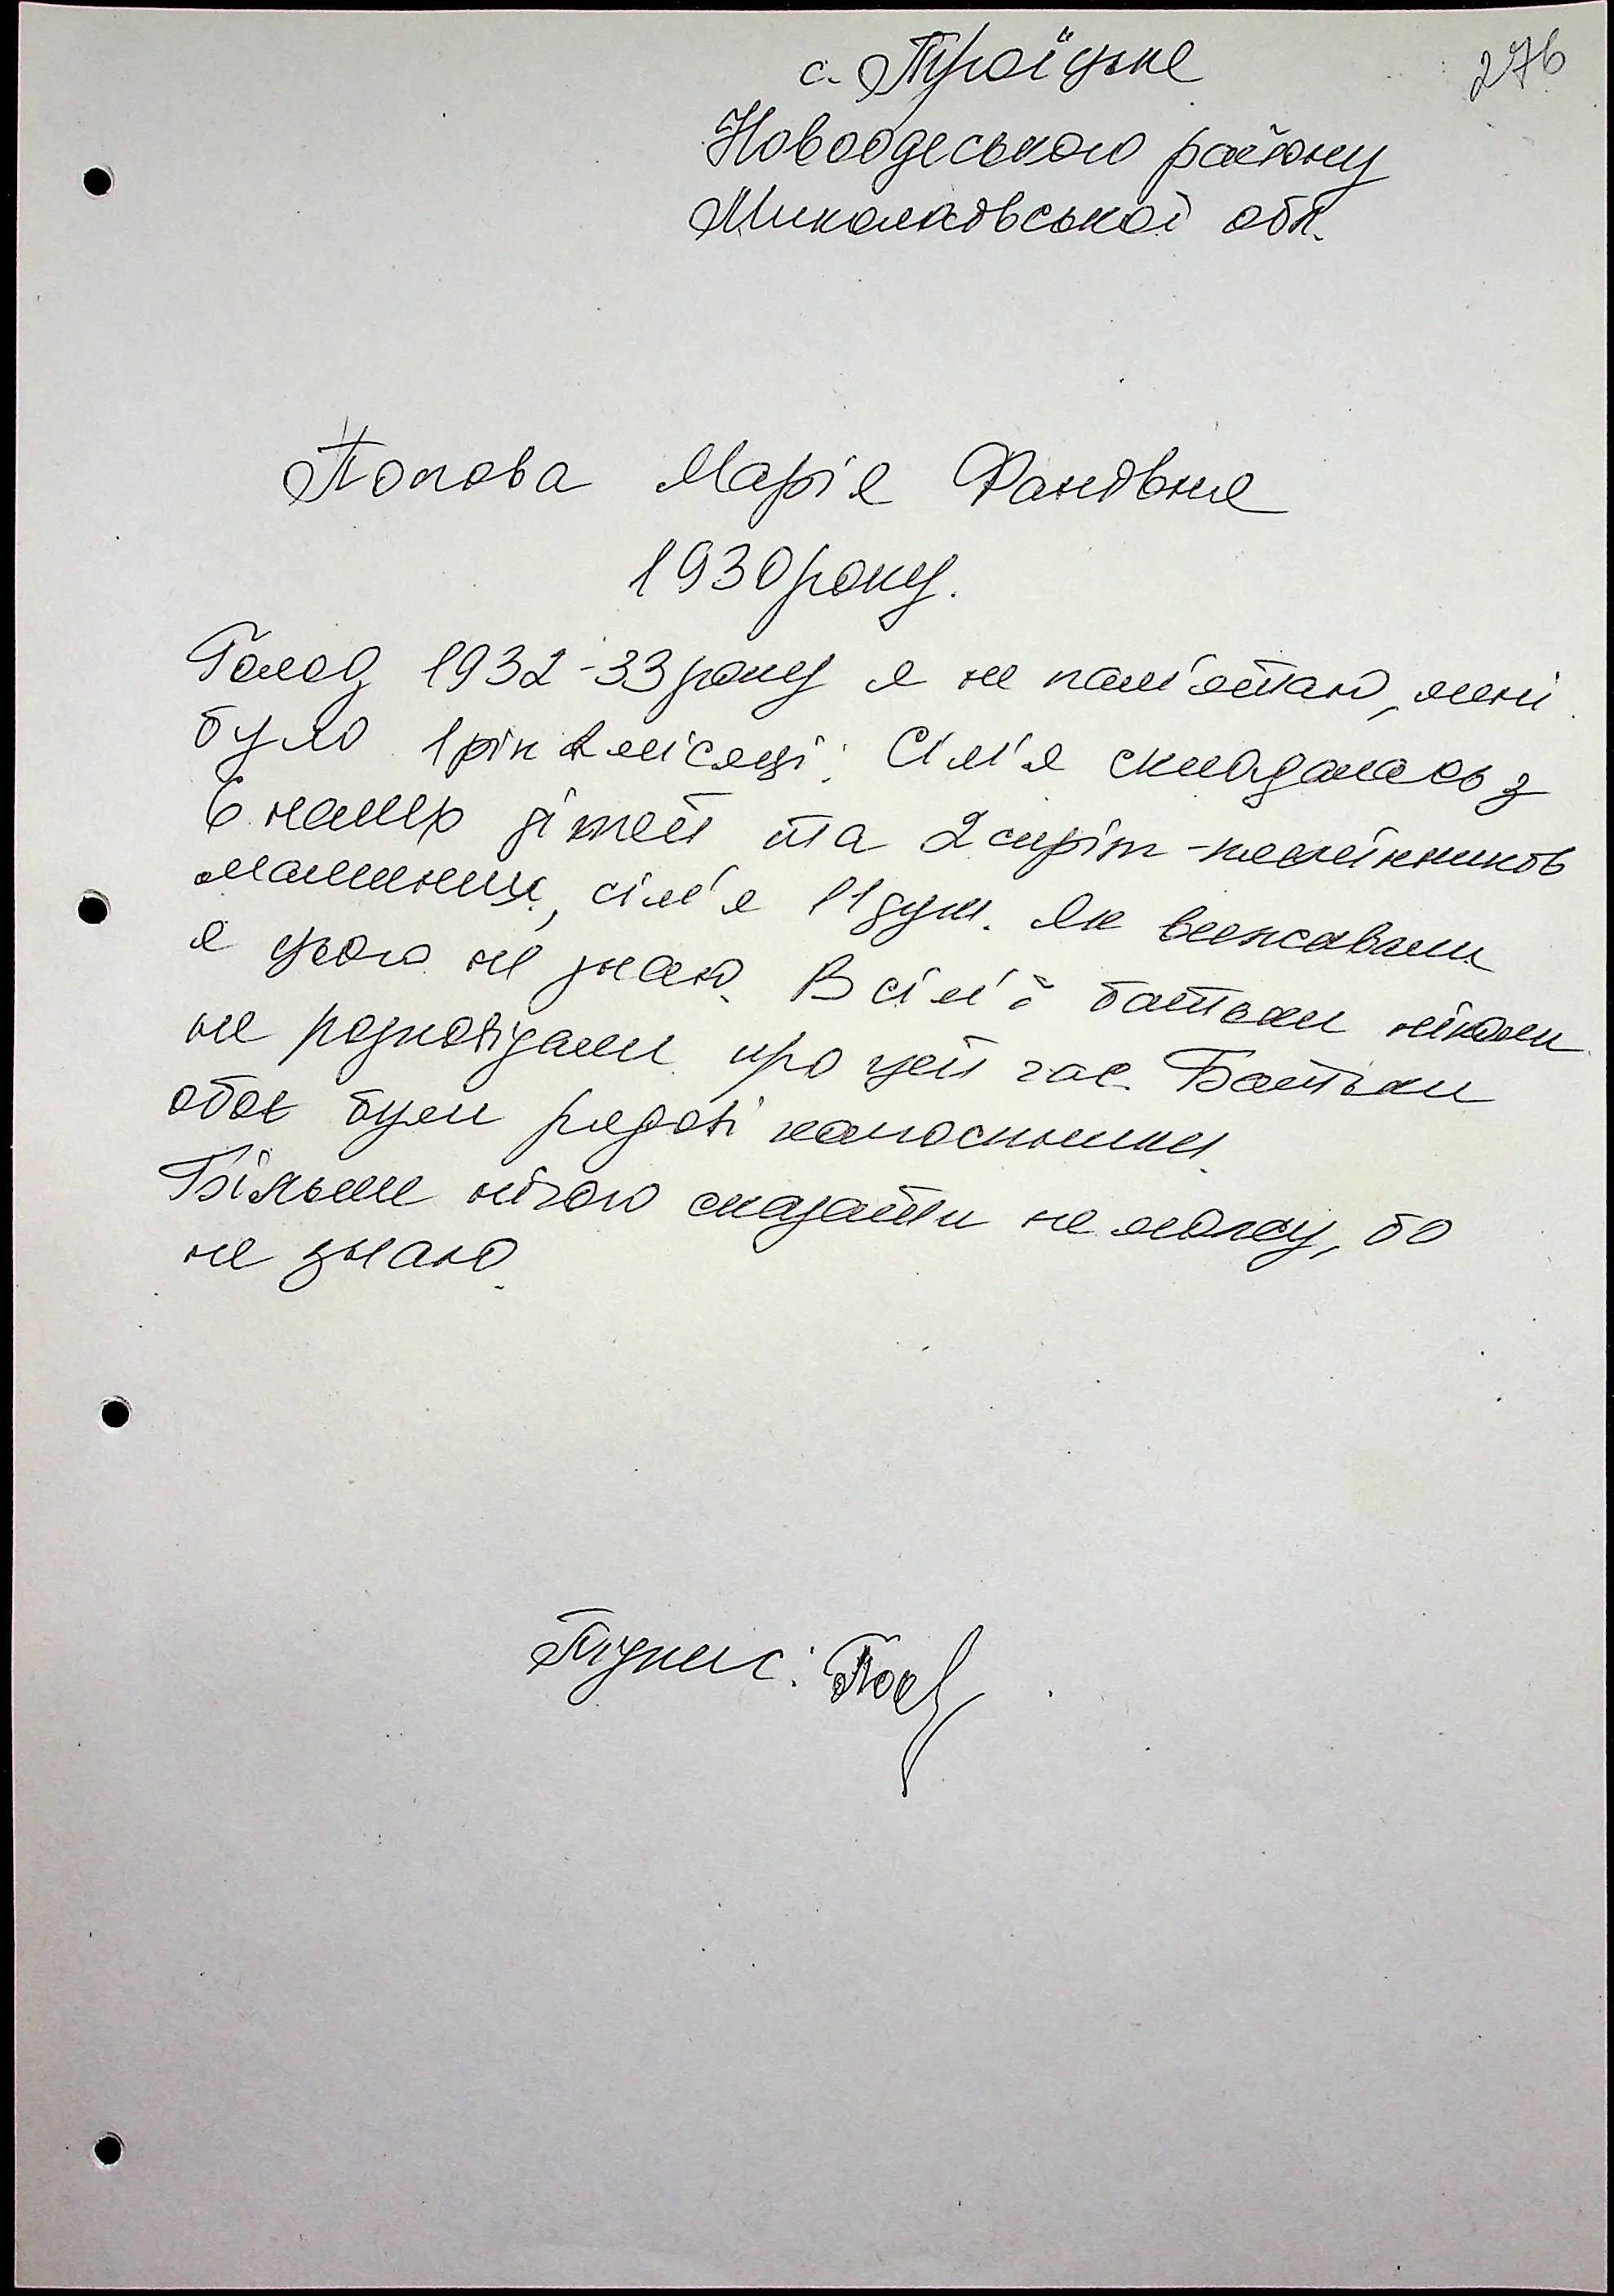 с. Троїцьке
276
Новоодеського району
Миколаївської обл.
Попова Марія
1930 року.
Голод 1932-33 року я не пам'ятаю, мені
було 1 рік місяці. Сім'я складалась з
6 наших дітей та 2 сиріт - племінників
маминих, сім'я 11 душ. Як виживали
я цього не знаю. В сім'ї батьки ніколи
не розповідали про цей час. Батьки
обоє були рядові колгоспники.
Більше нічого сказати не можу, бо
не знаю.
Підпис: